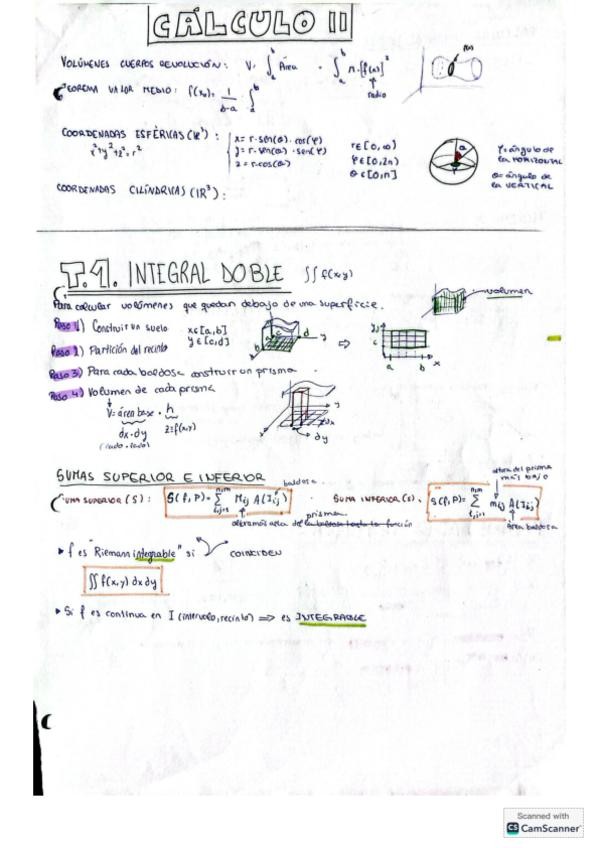 CÁLCULO II
VOLÚMENES CUERPOS REVOLUCIÓN: V = ∫_a^b Área = ∫_a^b π·[f(x)]²
f(x)
radio
TEOREMA VALOR MEDIO: f(x₀) = 1/(b-a) ∫_a^b
COORDENADAS ESFÉRICAS (R³):
x²+y²+z²=r²
x = r·sen(θ)·cos(φ)
y = r·sen(θ)·sen(φ)
z = r·cos(θ)
r∈[0,∞)
φ∈[0,2π)
θ∈[0,π]
φ=ángulo de la HORIZONTAL
θ=ángulo de la VERTICAL
COORDENADAS CILÍNDRICAS (R³):
T.1. INTEGRAL DOBLE ∫∫ f(x,y)
Para calcular volúmenes que quedan debajo de una superficie.
volumen
Paso 1) Construir un suelo x∈[a,b]
y∈[c,d]
Paso 2) Partición del recinto
Paso 3) Para cada baldosa construir un prisma
Paso 4) Volumen de cada prisma
V = área base · h
dx·dy z=f(x,y)
(lado·lado)
a b x
c
y
dx
dy
SUMAS SUPERIOR E INFERIOR
SUMA SUPERIOR (S): S(f,P)= Σ_{i,j=1}^{n,m} M_ij A(I_ij)
baldosa
SUMA INFERIOR (s). s(f,P)= Σ_{i,j=1}^{n,m} m_ij A(I_ij)
altura del prisma más bajo
Área baldosa
prisma
▸ f es "Riemann integrable" si COINCIDEN
∫∫ f(x,y) dx dy
▸ Si f es continua en I (intervalo, recinto) ⟹ es INTEGRABLE
Scanned with
CS CamScanner